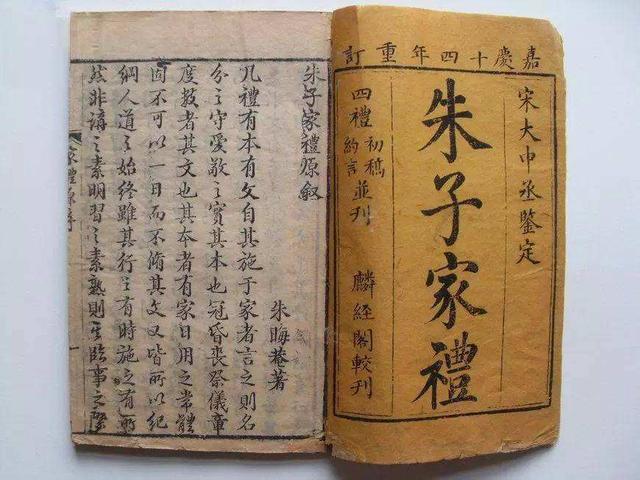 嘉慶十四年重訂
宋大中丞鑒定
朱子家禮
四禮初稿約言並刊
麟經閣較刊
朱子家禮原敘
朱晦菴著
凡禮有本有文自其施于家者言之則名
分之守愛敬之實其本也冠昏喪祭儀章
度數者其文也其本者有家日用之常體
固不可以一日而不脩其文又皆所以紀
綱人道之始終雖其行之有時施之有所
然非講之素明習之素熟則其臨事之際
家禮原序
一